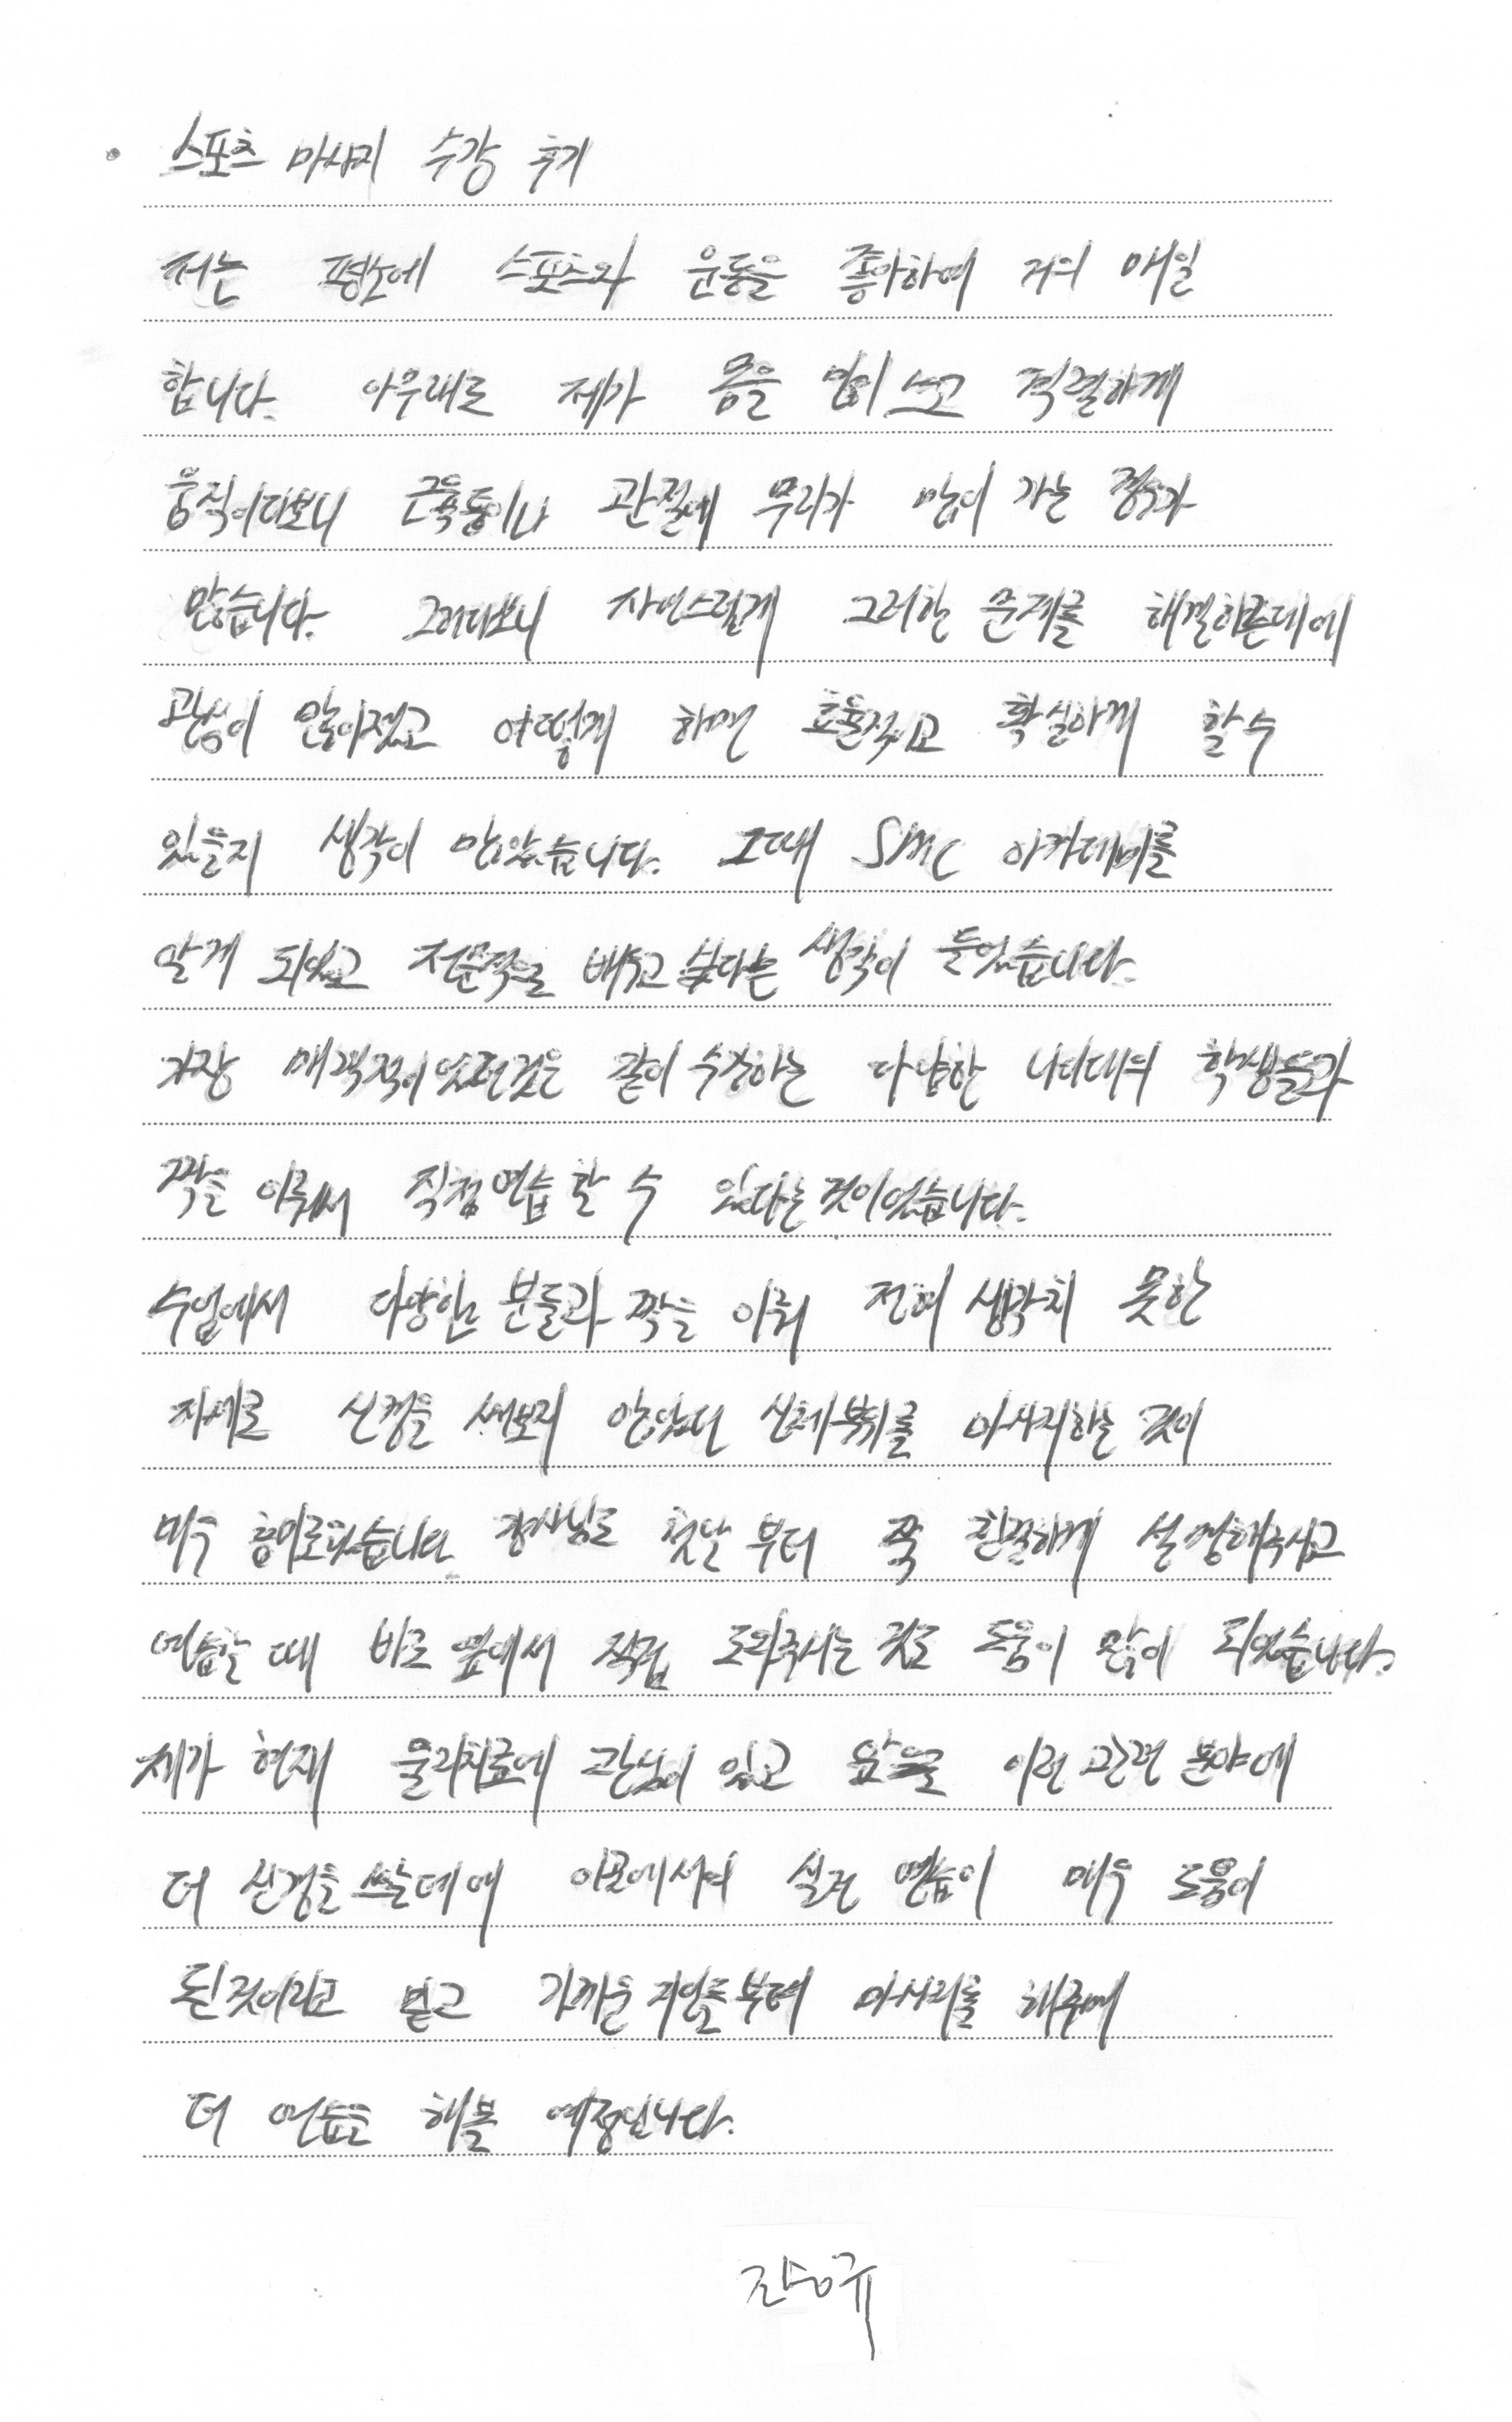 스포츠 마사지 수강 후기
저는 평소에 스포츠와 운동을 좋아하여 거의 매일
합니다. 아무래도 제가 몸을 많이 쓰고 격렬하게
움직이다보니 근육통이나 관절에 무리가 많이 가는 경우가
많습니다. 그러다보니 자연스럽게 그러한 문제를 해결하는데에
관심이 많아졌고 어떻게 하면 효율적이고 확실하게 할 수
있을지 생각이 많았습니다. 그때 SMC 아카데미를
알게 되었고 배우고 싶다는 생각이 들었습니다.
가장 매력적이었던것은 같이 수강하는 다양한 나이대의 학생들과
짝을 이뤄서 직접 연습할 수 있다는 것이었습니다.
수업에서 다양한 분들과 짝을 이뤄 전혀 생각치 못한
자세로 신경을 써보지 않았던 신체부위를 마사지하는 것이
매우 흥미로웠습니다. 강사님도 첫날 부터 쭉 친절하게 설명해주시고
연습할 때 바로 옆에서 직접 도와주시는 것도 도움이 많이 되었습니다.
제가 현재 물리치료에 관심이 있고 이런 관련 분야에
더 신경을 쓰는데에 이곳에서의 실전 연습이 매우 도움이
된것이라고 믿고 가까운 지인들부터 마사지를 해주며
더 연습을 해볼 예정입니다.